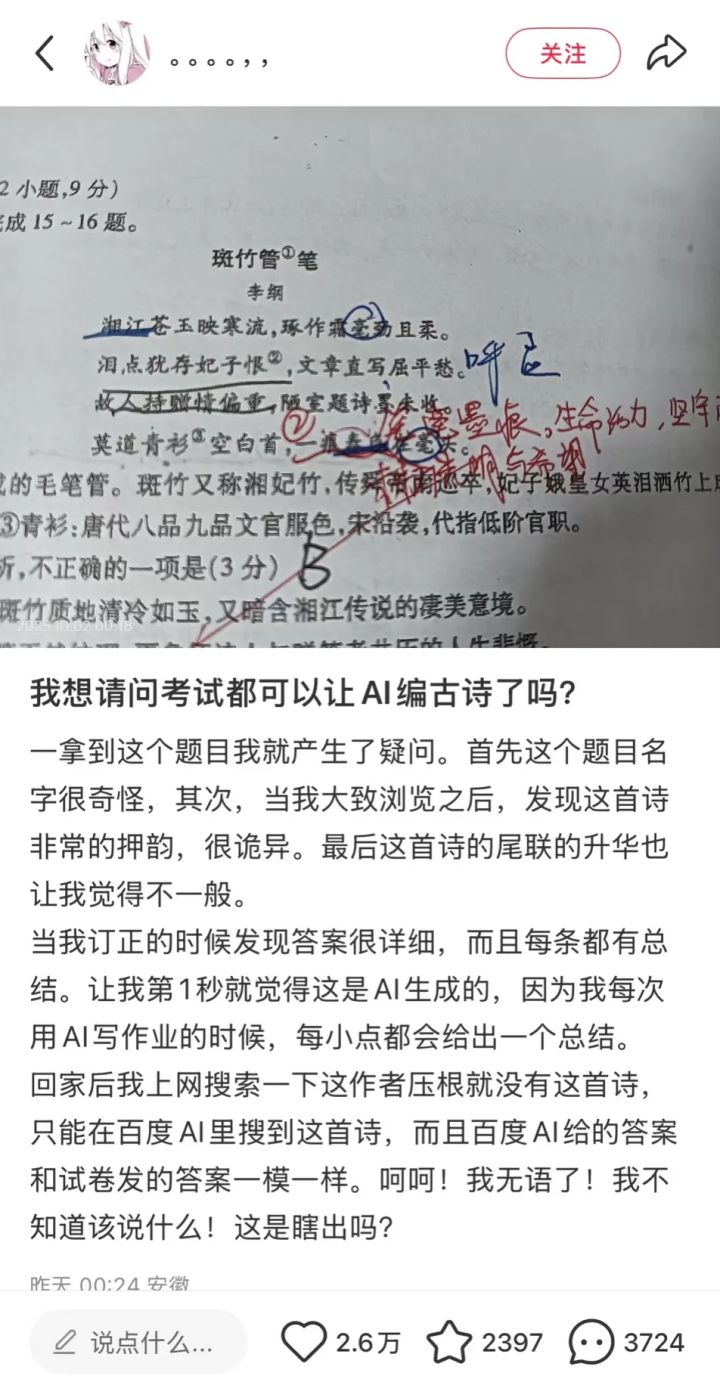 。。。。，，
关注
2 小题,9 分）
成 15～16 题。
斑竹管①笔
李纲
湘江苍玉映寒流,琢作霜毫劲且柔。
泪点犹存妃子恨②,文章直写屈平愁。
呼应
故人持赠情偏重,陋室题诗墨未收。
莫道青衫③空白首,一
②
墨痕。生命活力,坚守
成的毛笔管。斑竹又称湘妃竹,传舜帝南巡卒,妃子娥皇女英泪洒竹上
③青衫:唐代八品九品文官服色,宋沿袭,代指低阶官职。
析,不正确的一项是(3 分)
B
斑竹质地清冷如玉,又暗含湘江传说的凄美意境。
2025.10.02 00:18
我想请问考试都可以让AI编古诗了吗？
一拿到这个题目我就产生了疑问。首先这个题目名
字很奇怪，其次，当我大致浏览之后，发现这首诗
非常的押韵，很诡异。最后这首诗的尾联的升华也
让我觉得不一般。
当我订正的时候发现答案很详细，而且每条都有总
结。让我第1秒就觉得这是AI生成的，因为我每次
用AI写作业的时候，每小点都会给出一个总结。
回家后我上网搜索一下这作者压根就没有这首诗，
只能在百度AI里搜到这首诗，而且百度AI给的答案
和试卷发的答案一模一样。呵呵！我无语了！我不
知道该说什么！这是瞎出吗？
昨天 00:24 安徽
说点什么...
2.6万
2397
3724